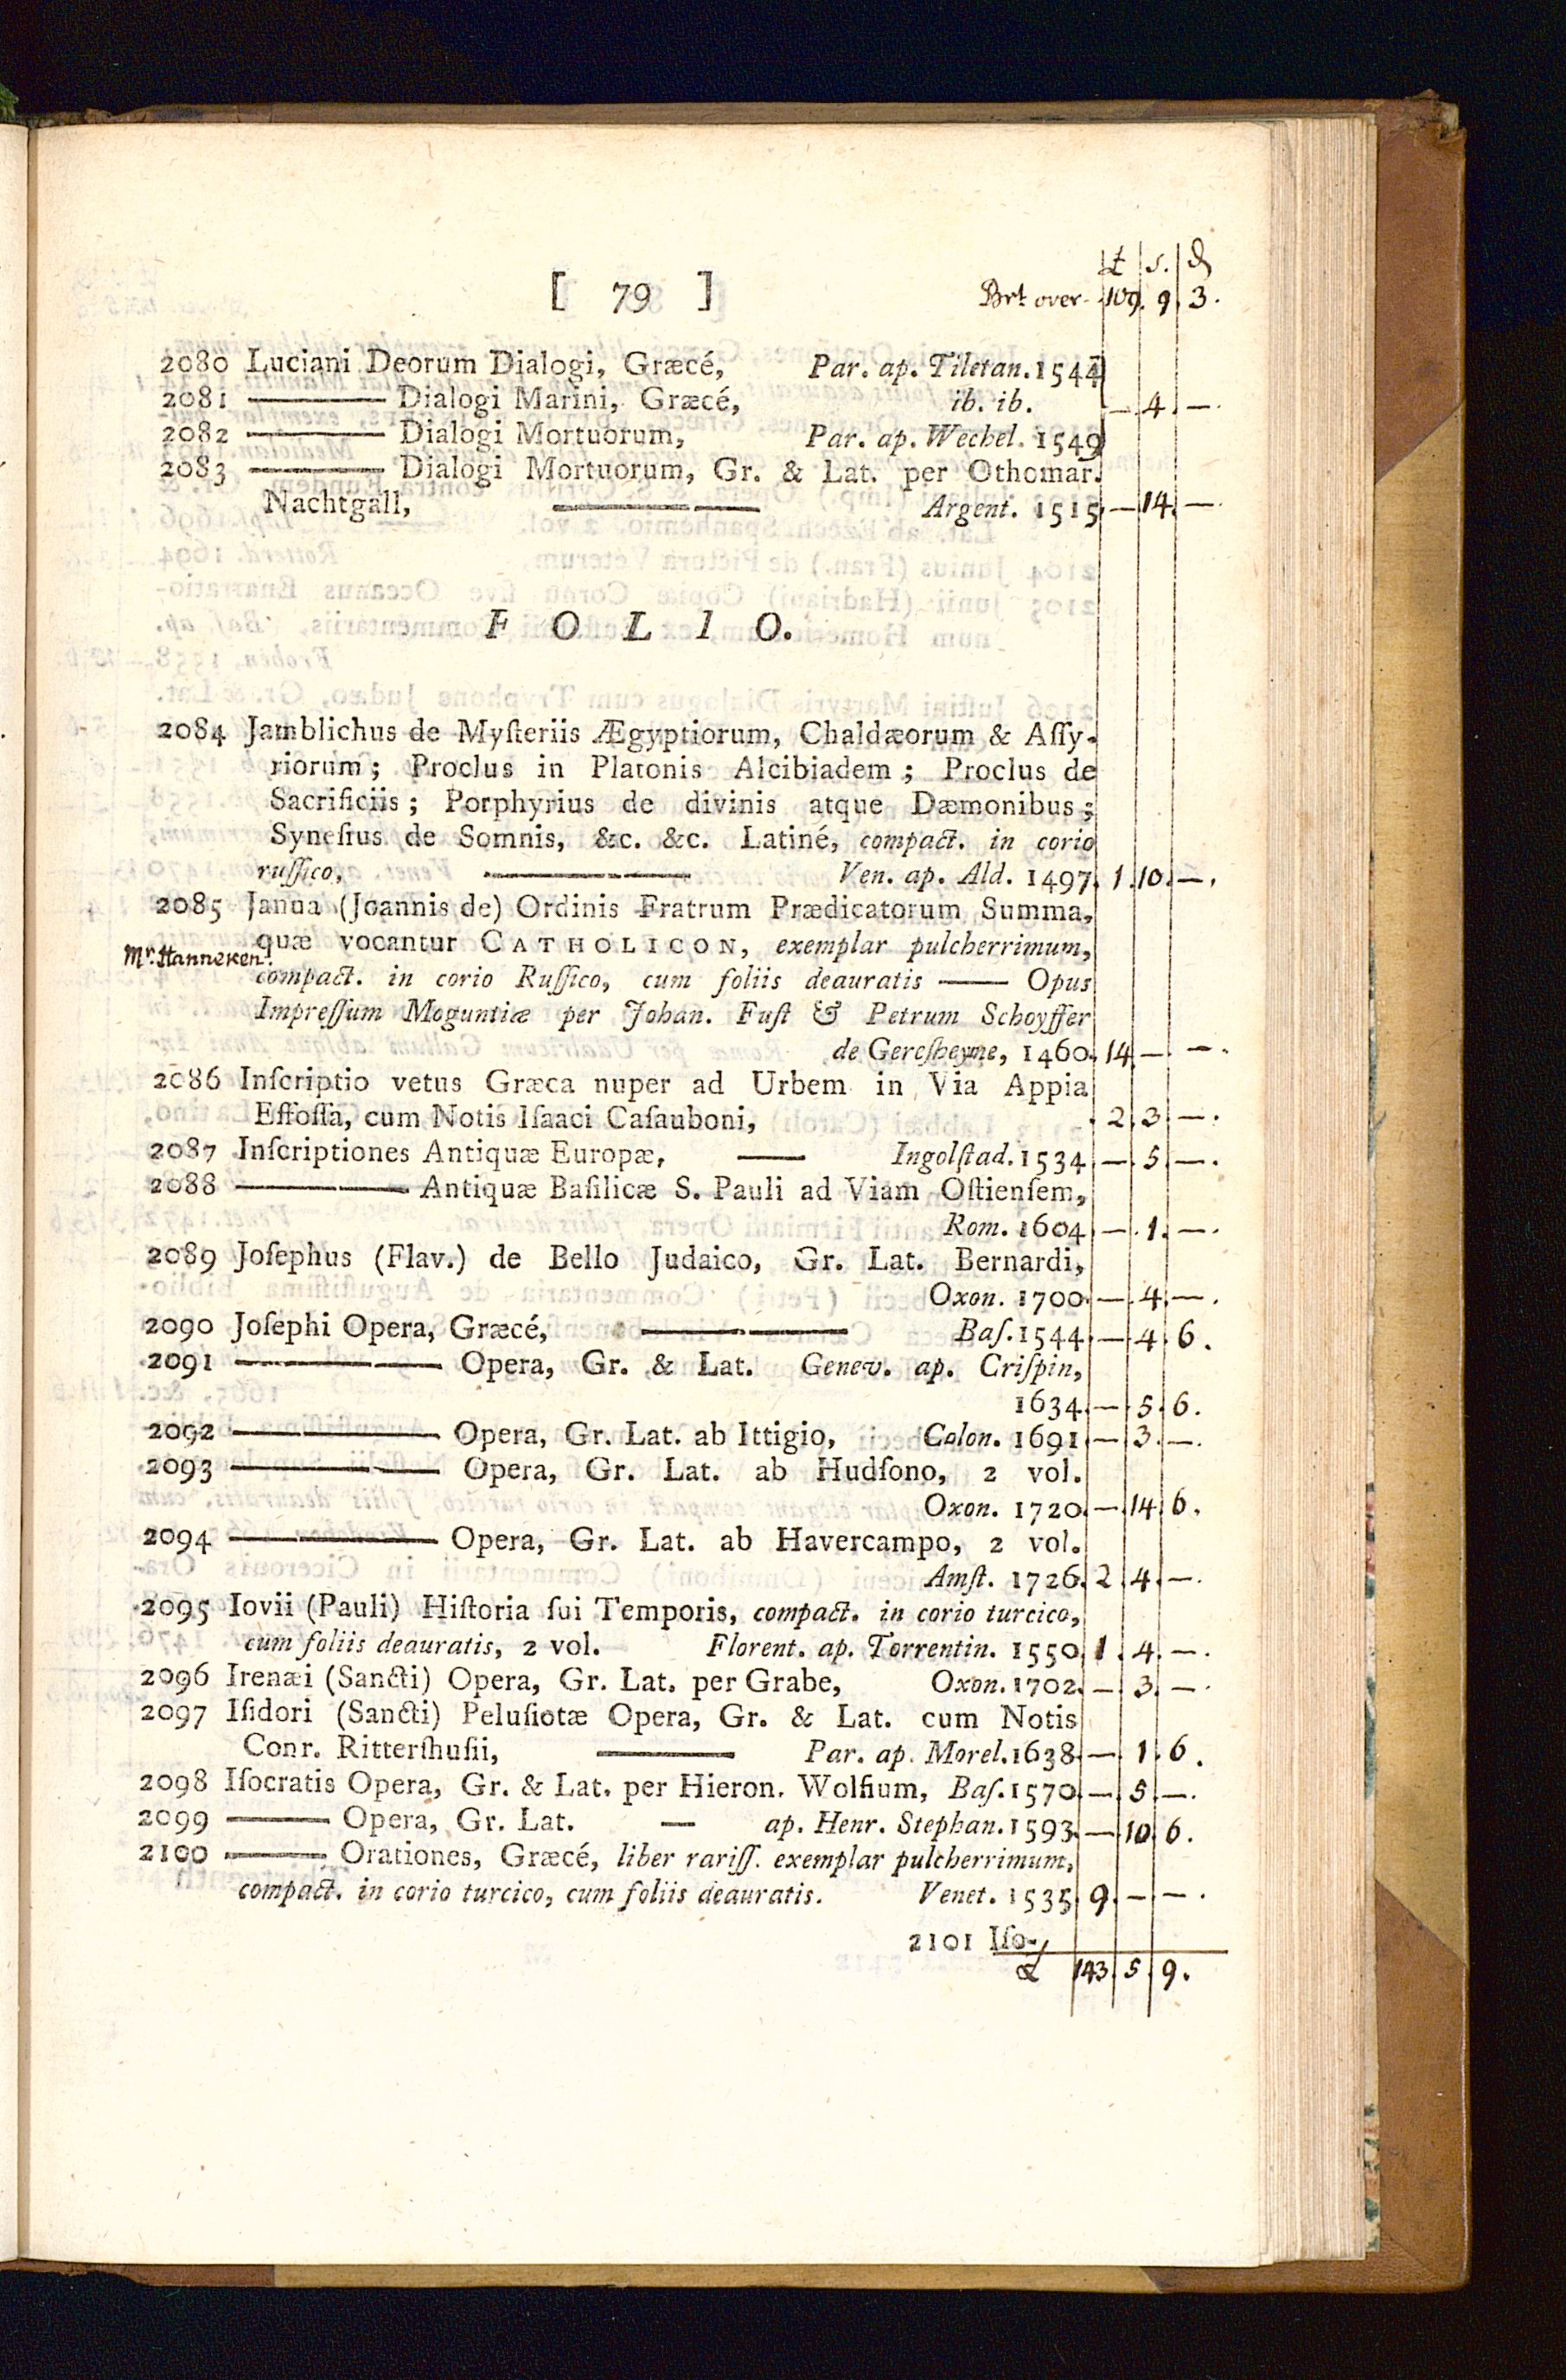 £ s. d
[ 79 ] Brt over 109. 9. 3.
2080 Luciani Deorum Dialogi, Græcé, Par. ap. Tiletan. 1544
2081 ——— Dialogi Marini, Græcé, ib. ib. — 4. —.
2082 ——— Dialogi Mortuorum, Par. ap. Wechel. 1549
2083 ——— Dialogi Mortuorum, Gr. & Lat. per Othomar.
Nachtgall, ——— Argent. 1515. — 14. —.
FOLIO.
2084 Jamblichus de Myſteriis Ægyptiorum, Chaldæorum & Aſſy-
riorum; Proclus in Platonis Alcibiadem; Proclus de
Sacrificiis; Porphyrius de divinis atque Dæmonibus;
Syneſius de Somnis, &c. &c. Latiné, compact. in corio
ruſſico, ——— Ven. ap. Ald. 1497. 1. 10. —.
2085 Janua (Joannis de) Ordinis Fratrum Prædicatorum Summa,
quæ vocantur CATHOLICON, exemplar pulcherrimum,
Mr. Hanneken.
compact. in corio Ruſſico, cum foliis deauratis —— Opus
Impreſſum Moguntiæ per Johan. Fuſt & Petrum Schoyffer
de Gereſheyne, 1460. 14. — —.
2086 Inſcriptio vetus Græca nuper ad Urbem in Via Appia
Effoſſa, cum Notis Iſaaci Caſauboni, 2. 3. —.
2087 Inſcriptiones Antiquæ Europæ, —— Ingolſtad. 1534. — 5. —.
2088 ——— Antiquæ Baſilicæ S. Pauli ad Viam Oſtienſem,
Rom. 1604. — 1. —.
2089 Joſephus (Flav.) de Bello Judaico, Gr. Lat. Bernardi,
Oxon. 1700. — 4. —.
2090 Joſephi Opera, Græcé, ——— Baſ. 1544. — 4. 6.
2091 ——— Opera, Gr. & Lat. Genev. ap. Criſpin,
1634. — 5. 6.
2092 ——— Opera, Gr. Lat. ab Ittigio, Colon. 1691. — 3. —.
2093 ——— Opera, Gr. Lat. ab Hudſono, 2 vol.
Oxon. 1720. — 14. 6.
2094 ——— Opera, Gr. Lat. ab Havercampo, 2 vol.
Amſt. 1726. 2. 4. —.
2095 Iovii (Pauli) Hiſtoria ſui Temporis, compact. in corio turcico,
cum foliis deauratis, 2 vol. Florent. ap. Torrentin. 1550. 1. 4. —.
2096 Irenæi (Sancti) Opera, Gr. Lat. per Grabe, Oxon. 1702. — 3. —.
2097 Iſidori (Sancti) Peluſiotæ Opera, Gr. & Lat. cum Notis
Conr. Ritterſhuſii, ——— Par. ap. Morel. 1638. — 1. 6.
2098 Iſocratis Opera, Gr. & Lat. per Hieron. Wolfium, Baſ. 1570. — 5. —.
2099 ——— Opera, Gr. Lat. — ap. Henr. Stephan. 1593. — 10. 6.
2100 ——— Orationes, Græcé, liber rariſſ. exemplar pulcherrimum,
compact. in corio turcico, cum foliis deauratis. Venet. 1535. 9. — —.
2101 Iſo-
£ 143. 5. 9.